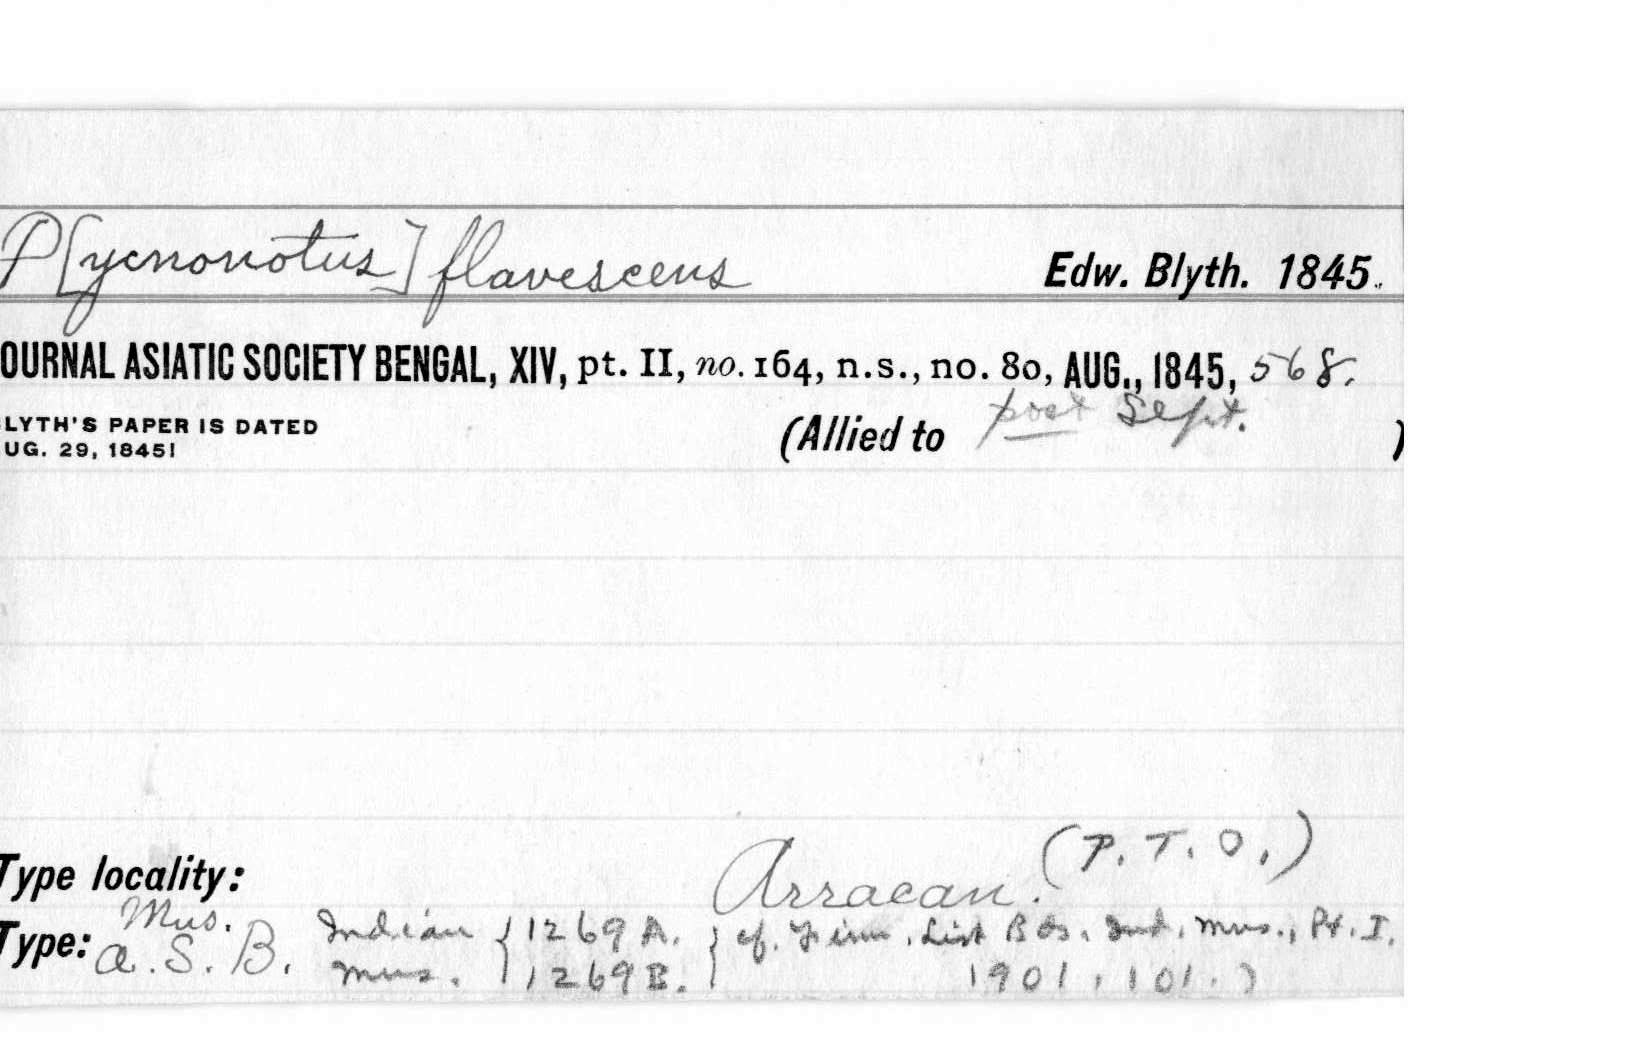 P[ycnonotus] flavescens Edw. Blyth. 1845.
OURNAL ASIATIC SOCIETY BENGAL, XIV, pt. II, no. 164, n.s., no. 80, AUG., 1845, 568.
LYTH'S PAPER IS DATED
UG. 29, 1845!
(Allied to post Sept. )
(P. T. O.)
Type locality: Arracan.
Type: Mus. A. S. B. Indian Mus. { 1269 A. 1269 B. } cf. Finn, List Bds. Ind. Mus., Pt. I,
1901, 101.)